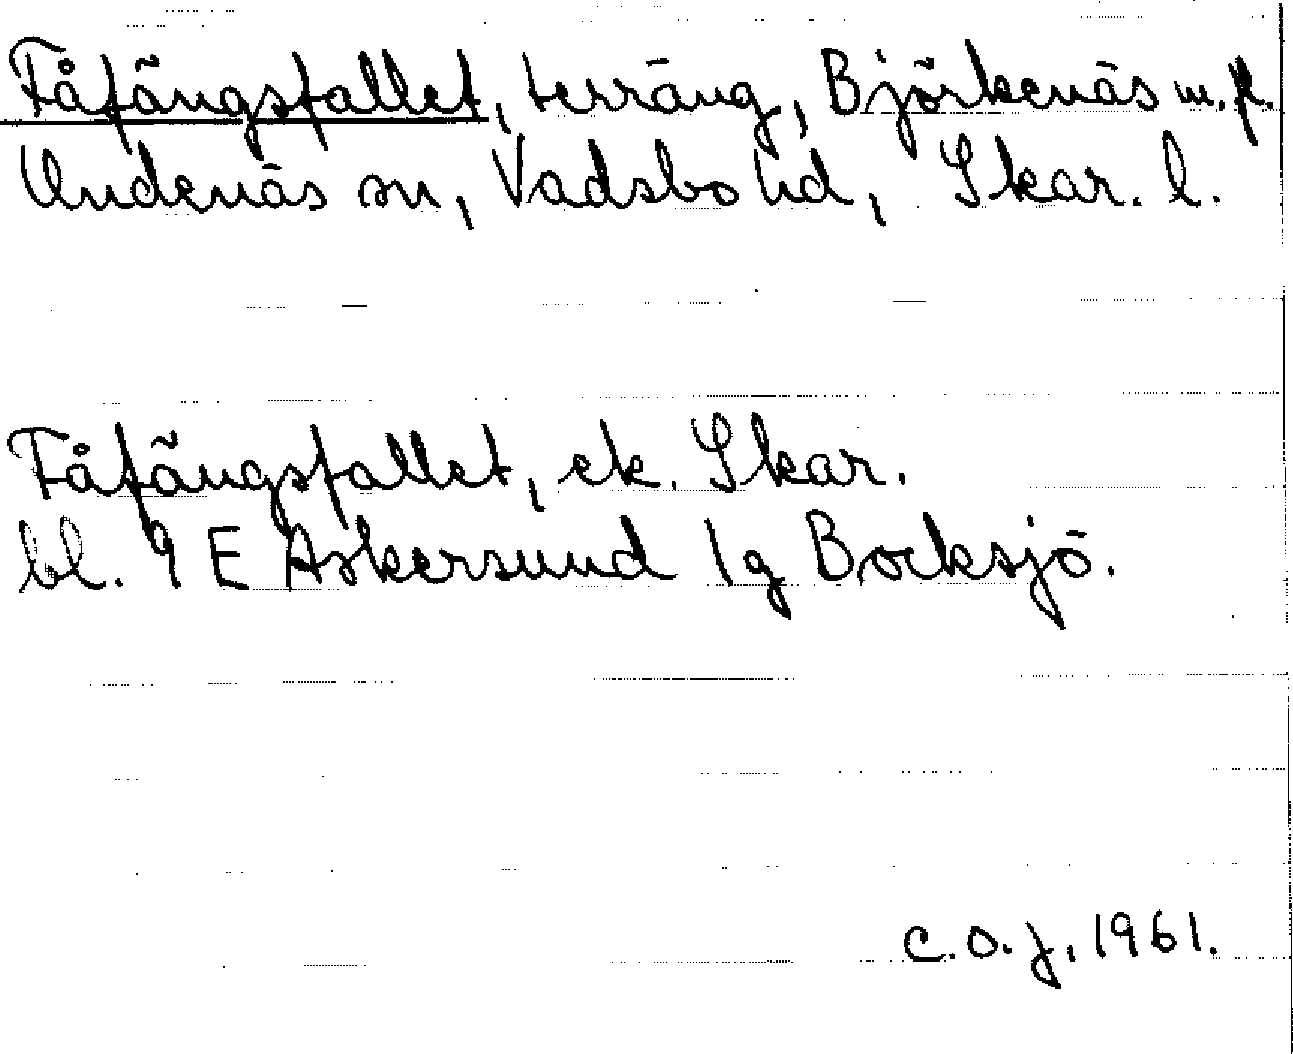 Fåfängsfallet, terräng, Björkenäs m.fl.
Undenäs sn, Vadsbo hd, Skar. l.
Fåfängsfallet, ek. Skar.
bl. 9 E Askersund 1g Bocksjö.
C.O.J. 1961.